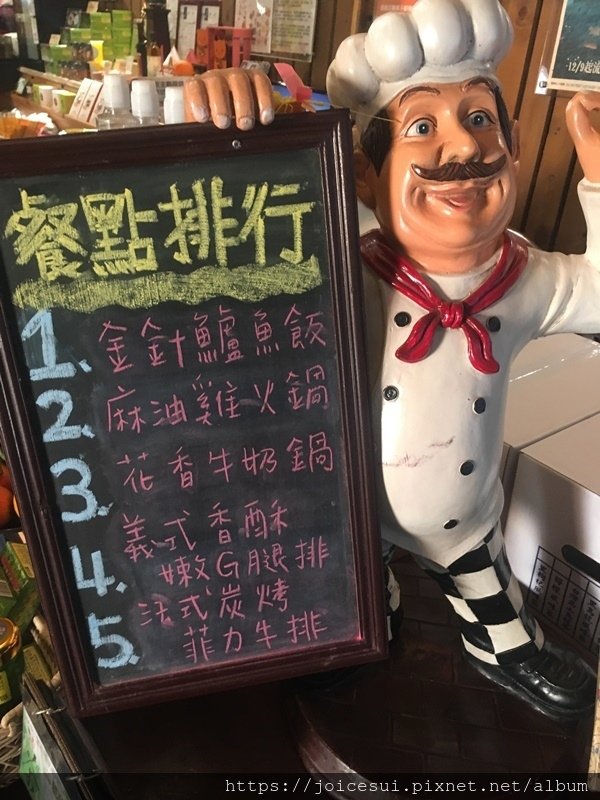 餐點排行
1. 金針鱸魚飯
2. 麻油雞火鍋
3. 花香牛奶鍋
4. 義式香酥
嫩G腿排
5. 法式炭烤
菲力牛排
https://joicesui.pixnet.net/album